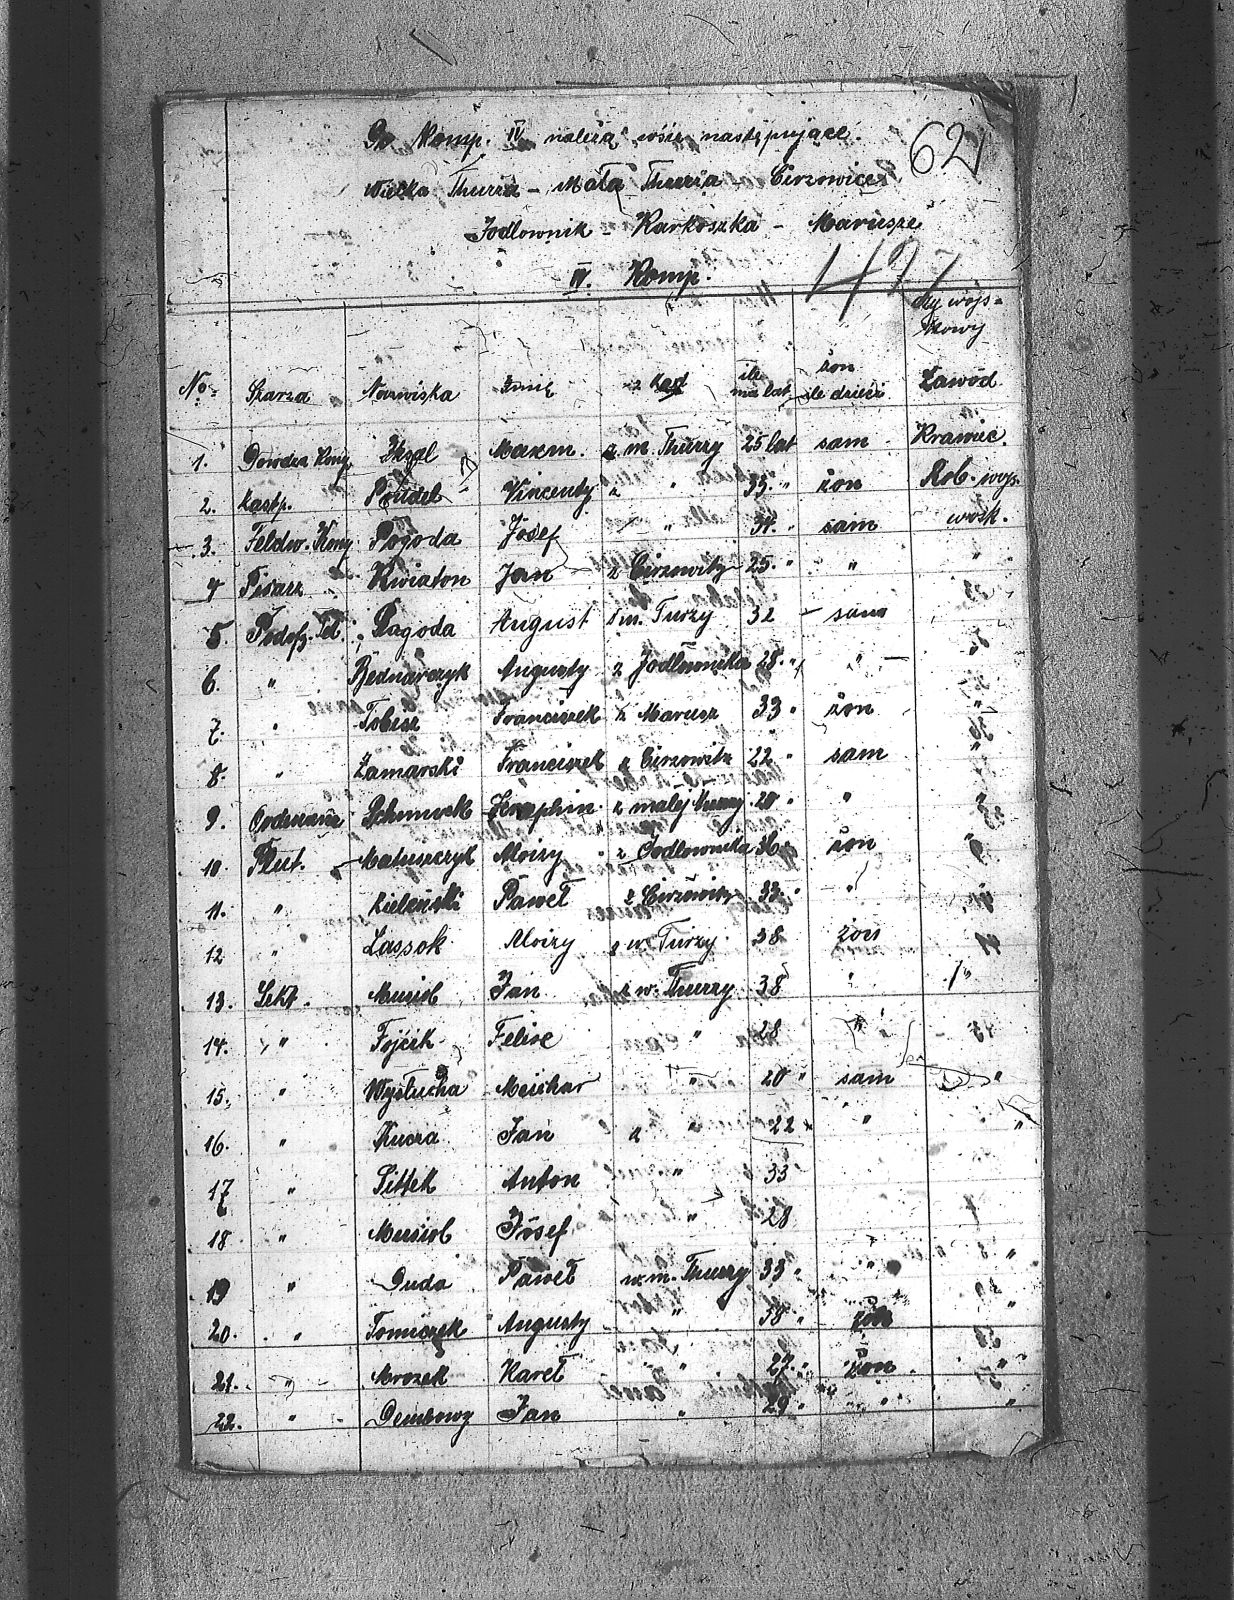 Do Komp. IV należą wsie następujące.
62
Wielka Thurza - Mała Thurzia Cirzowice
Jodlownik - Karkoszka - Marusze
IV. Komp.
1427
czy wojs=
kowy
No = Szarza Nazwiska Imię z kąd ile ma lat żon ile dzieci Zawód
1. Dowdza Komp. Maxm. z m. Thurzy 25 lat sam Krawiec.
2. Zastp. Vincenty z " 35 " żon Rob. wojs.
3. Feldw. Komp Pogoda Josef " 34 " sam wosk.
4 Pisarz Kwiaton Jan z Cirzowitz 25 " " "
5 Podofz. Pagoda August z m. Turzy 32 - sam "
6. " Bednarczyk Augusty z Jodlownika 28 " " "
7. " Tobisz Franciszek z Marusz 33 " żon "
8. " Zamarski Franciszek z Cirzowitz 22 " sam "
9. Seraphin z malej Thurzy 20 " " "
10. Plut. Matuszczyk Aloizy z Jodlownika 36 " żon "
11. " Zielenski Paweł z Cirzowitz 33 " " "
12 " Lassok Aloizy z w. Turzy 38 żon
13. Sekt. Musiol Jan z w. Thurzy 38 " "
14. " Fojcik Felixe " 28 "
15. " Wystucha Meichar " 20 " sam "
16. " Kucza Jan z " 22 " " "
17 " Sittek Anton " 33
18 " Musiol Josef " 28
19 " Duda Paweł w. m. Thurzy 33 " " "
20. " Tomiczek Augusty " 38 " żon "
21. " Mrozek Kareł " 27 " żon "
22. " Dembowy Jan " 29 " " "